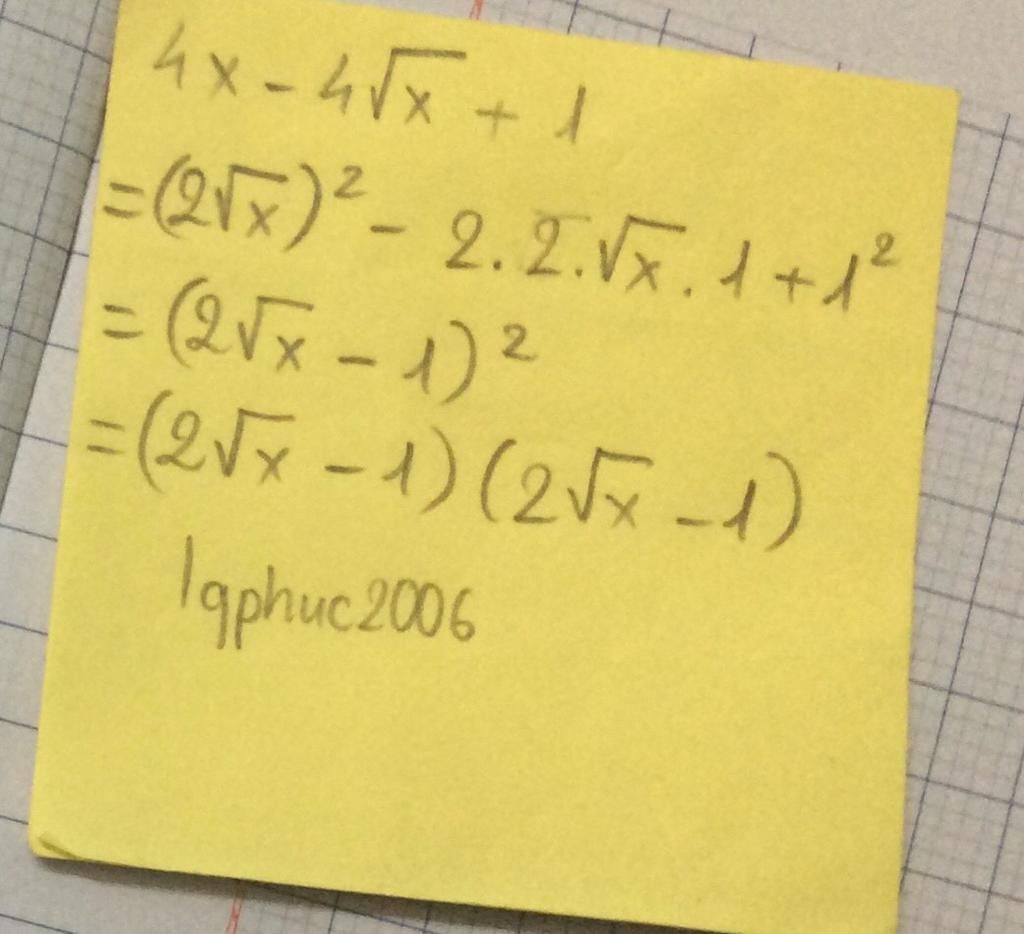 4x - 4√x + 1
= (2√x)² - 2.2.√x.1 + 1²
= (2√x - 1)²
= (2√x - 1) (2√x - 1)
lqphuc2006